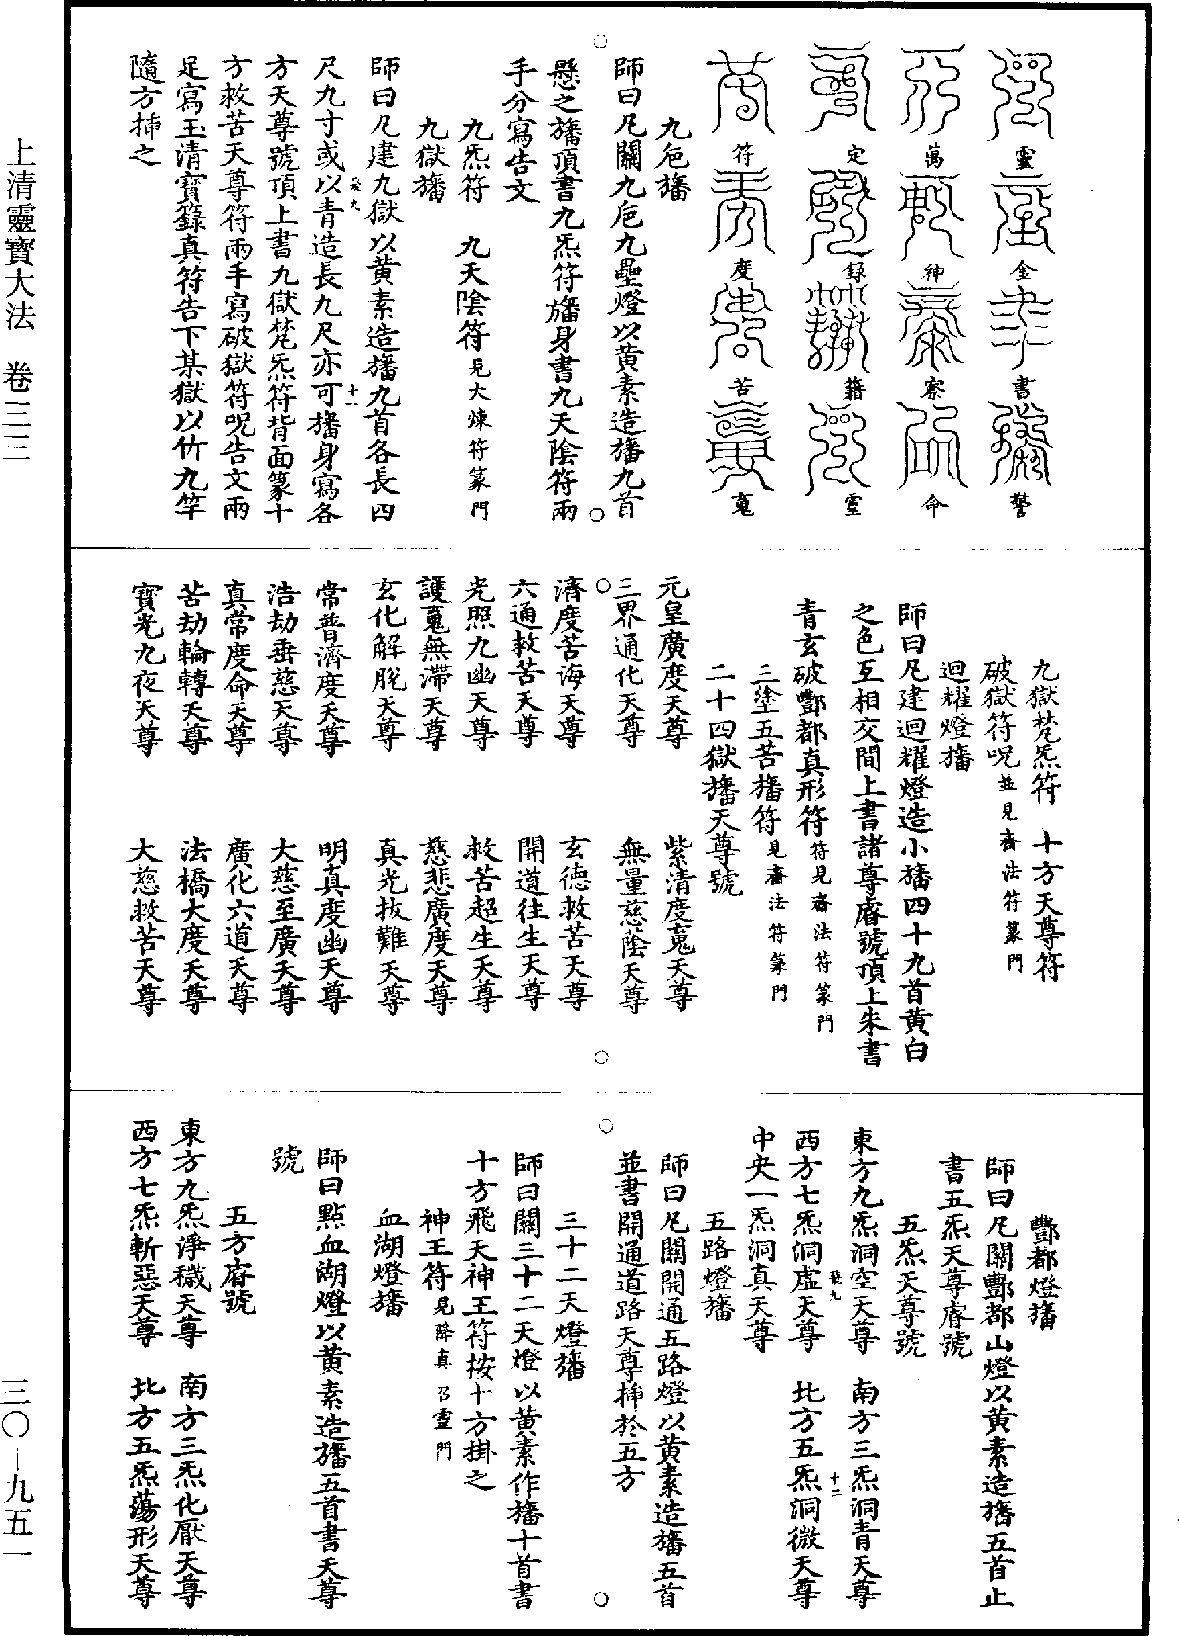 上清靈寶大法　卷三三
三〇—九五一
靈　金　書　警
萬　神　察　命
定　錄　籍　靈
符　度　苦　䰟
九巵旛
師曰凡關九巵九壘燈以黃素造旛九首
懸之旛頂書九炁符旛身書九天陰符兩
手分寫告文
九炁符　九天陰符見大煉符篆門
九獄旛
師曰凡建九獄以黃素造旛九首各長四
尺九寸或以青造長九尺亦可旛身寫各
方天尊號頂上書九獄梵炁符背面篆十
方救苦天尊符兩手寫破獄符呪告文兩
足寫玉清寶籙真符告下某獄以竹九竿
隨方揷之
九獄梵炁符　十方天尊符
破獄符呪並見齋法符篆門
迴耀燈旛
師曰凡建迴耀燈造小旛四十九首黃白
之色互相交間上書諸尊睿號頂上朱書
青玄破酆都真形符符見齋法符篆門
三塗五苦旛符見齋法符篆門
二十四獄旛天尊號
元皇廣度天尊　紫清度䰟天尊
三界通化天尊　無量慈蔭天尊
濟度苦海天尊　玄德救苦天尊
六通救苦天尊　開道往生天尊
光照九幽天尊　救苦超生天尊
護䰟無滯天尊　慈悲廣度天尊
玄化解脫天尊　真光拔難天尊
常普濟度天尊　明真度幽天尊
浩劫垂慈天尊　大慈至廣天尊
真常度命天尊　廣化六道天尊
苦劫輪轉天尊　法橋大度天尊
寶光九夜天尊　大慈救苦天尊
酆都燈旛
師曰凡關酆都山燈以黃素造旛五首止
書五炁天尊睿號
五炁天尊號
東方九炁洞空天尊　南方三炁洞青天尊
西方七炁洞虛天尊　北方五炁洞微天尊
中央一炁洞真天尊
五路燈旛
師曰凡關開通五路燈以黃素造旛五首
並書開通道路天尊揷於五方
三十二天燈旛
師曰關三十二天燈以黃素作旛十首書
十方飛天神王符按十方掛之
神王符見辟真召靈門
血湖燈旛
師曰點血湖燈以黃素造旛五首書天尊
號
五方睿號
東方九炁淨穢天尊　南方三炁化厭天尊
西方七炁斬惡天尊　北方五炁蕩形天尊